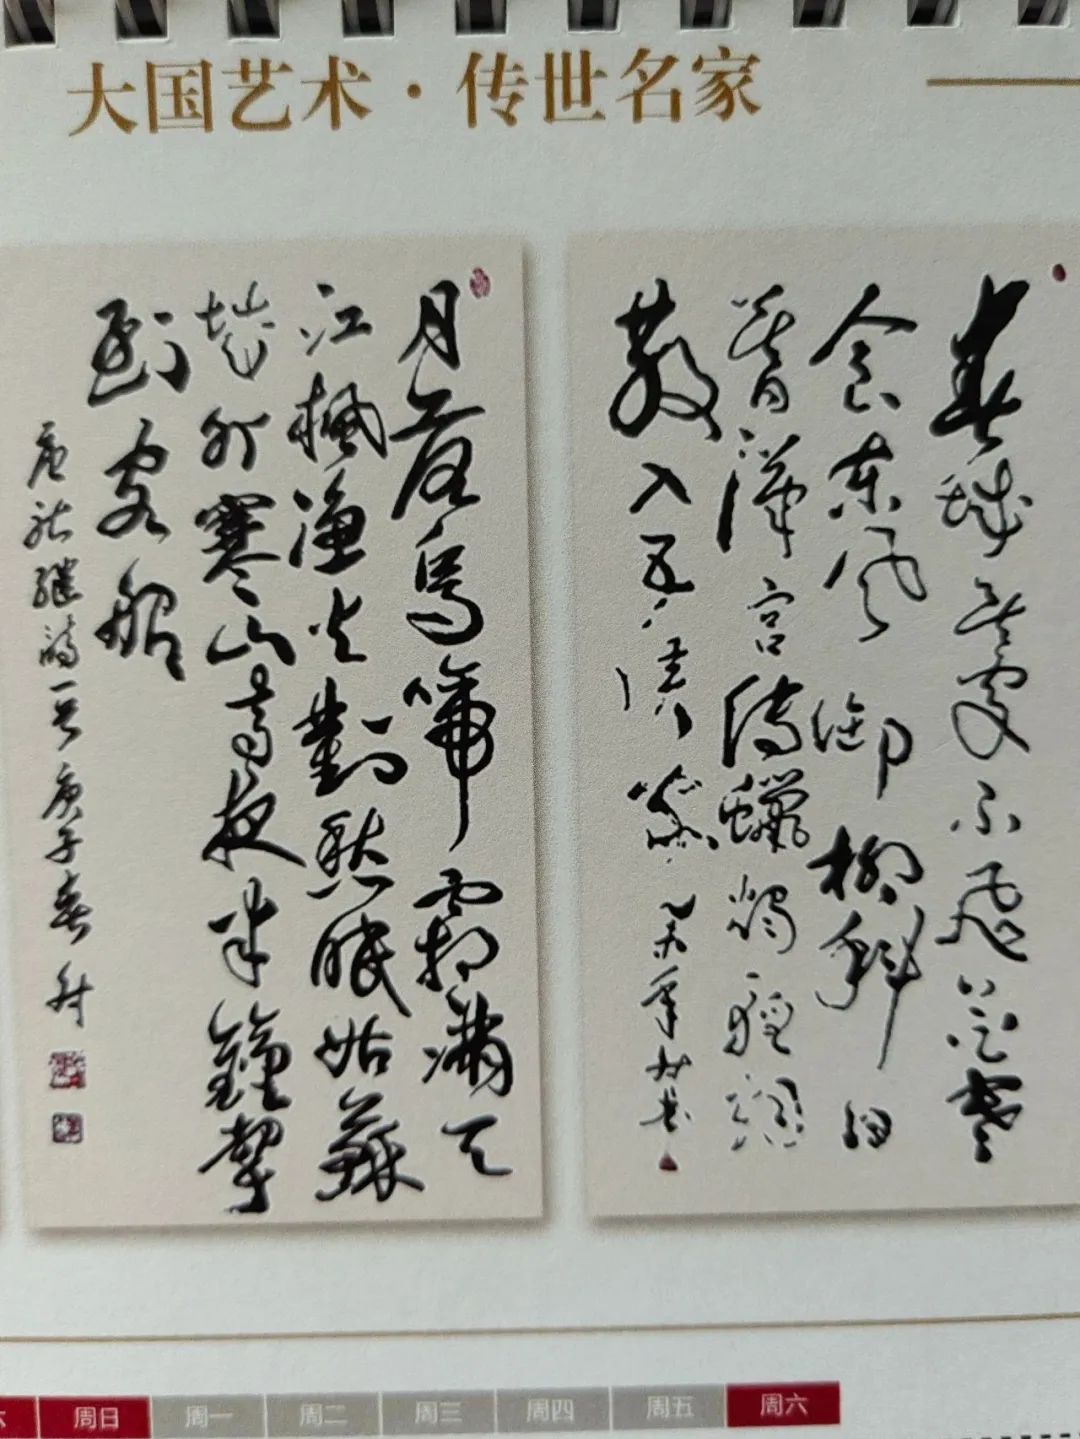 大国艺术·传世名家
春城无处不飞花寒
食东风御柳斜日
暮汉宫传蜡烛轻烟
散入五侯家
月落乌啼霜满天
江枫渔火對愁眠姑蘇
城外寒山寺夜半鐘聲
到客船
张继诗一首庚子春
周日 周一 周二 周三 周四 周五 周六